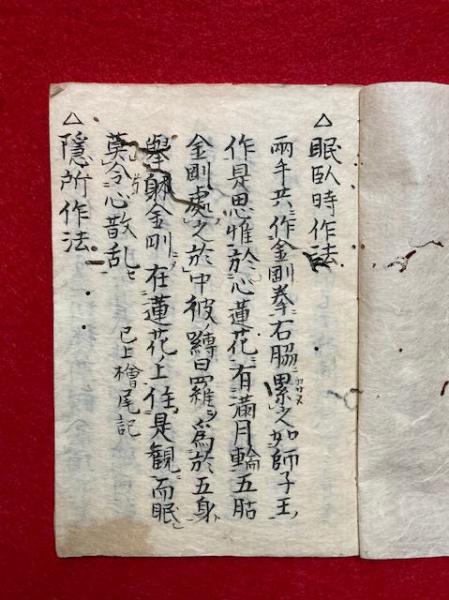 △眠臥時作法
兩手共作金剛拳右脇累之如師子王
作是思惟於心蓮花有滿月輪五胋
金剛處之於中彼縛日羅為於五身
舉身金剛在蓮花上住是觀而眠
莫令心散乱 已上檜尾記
△隱所作法